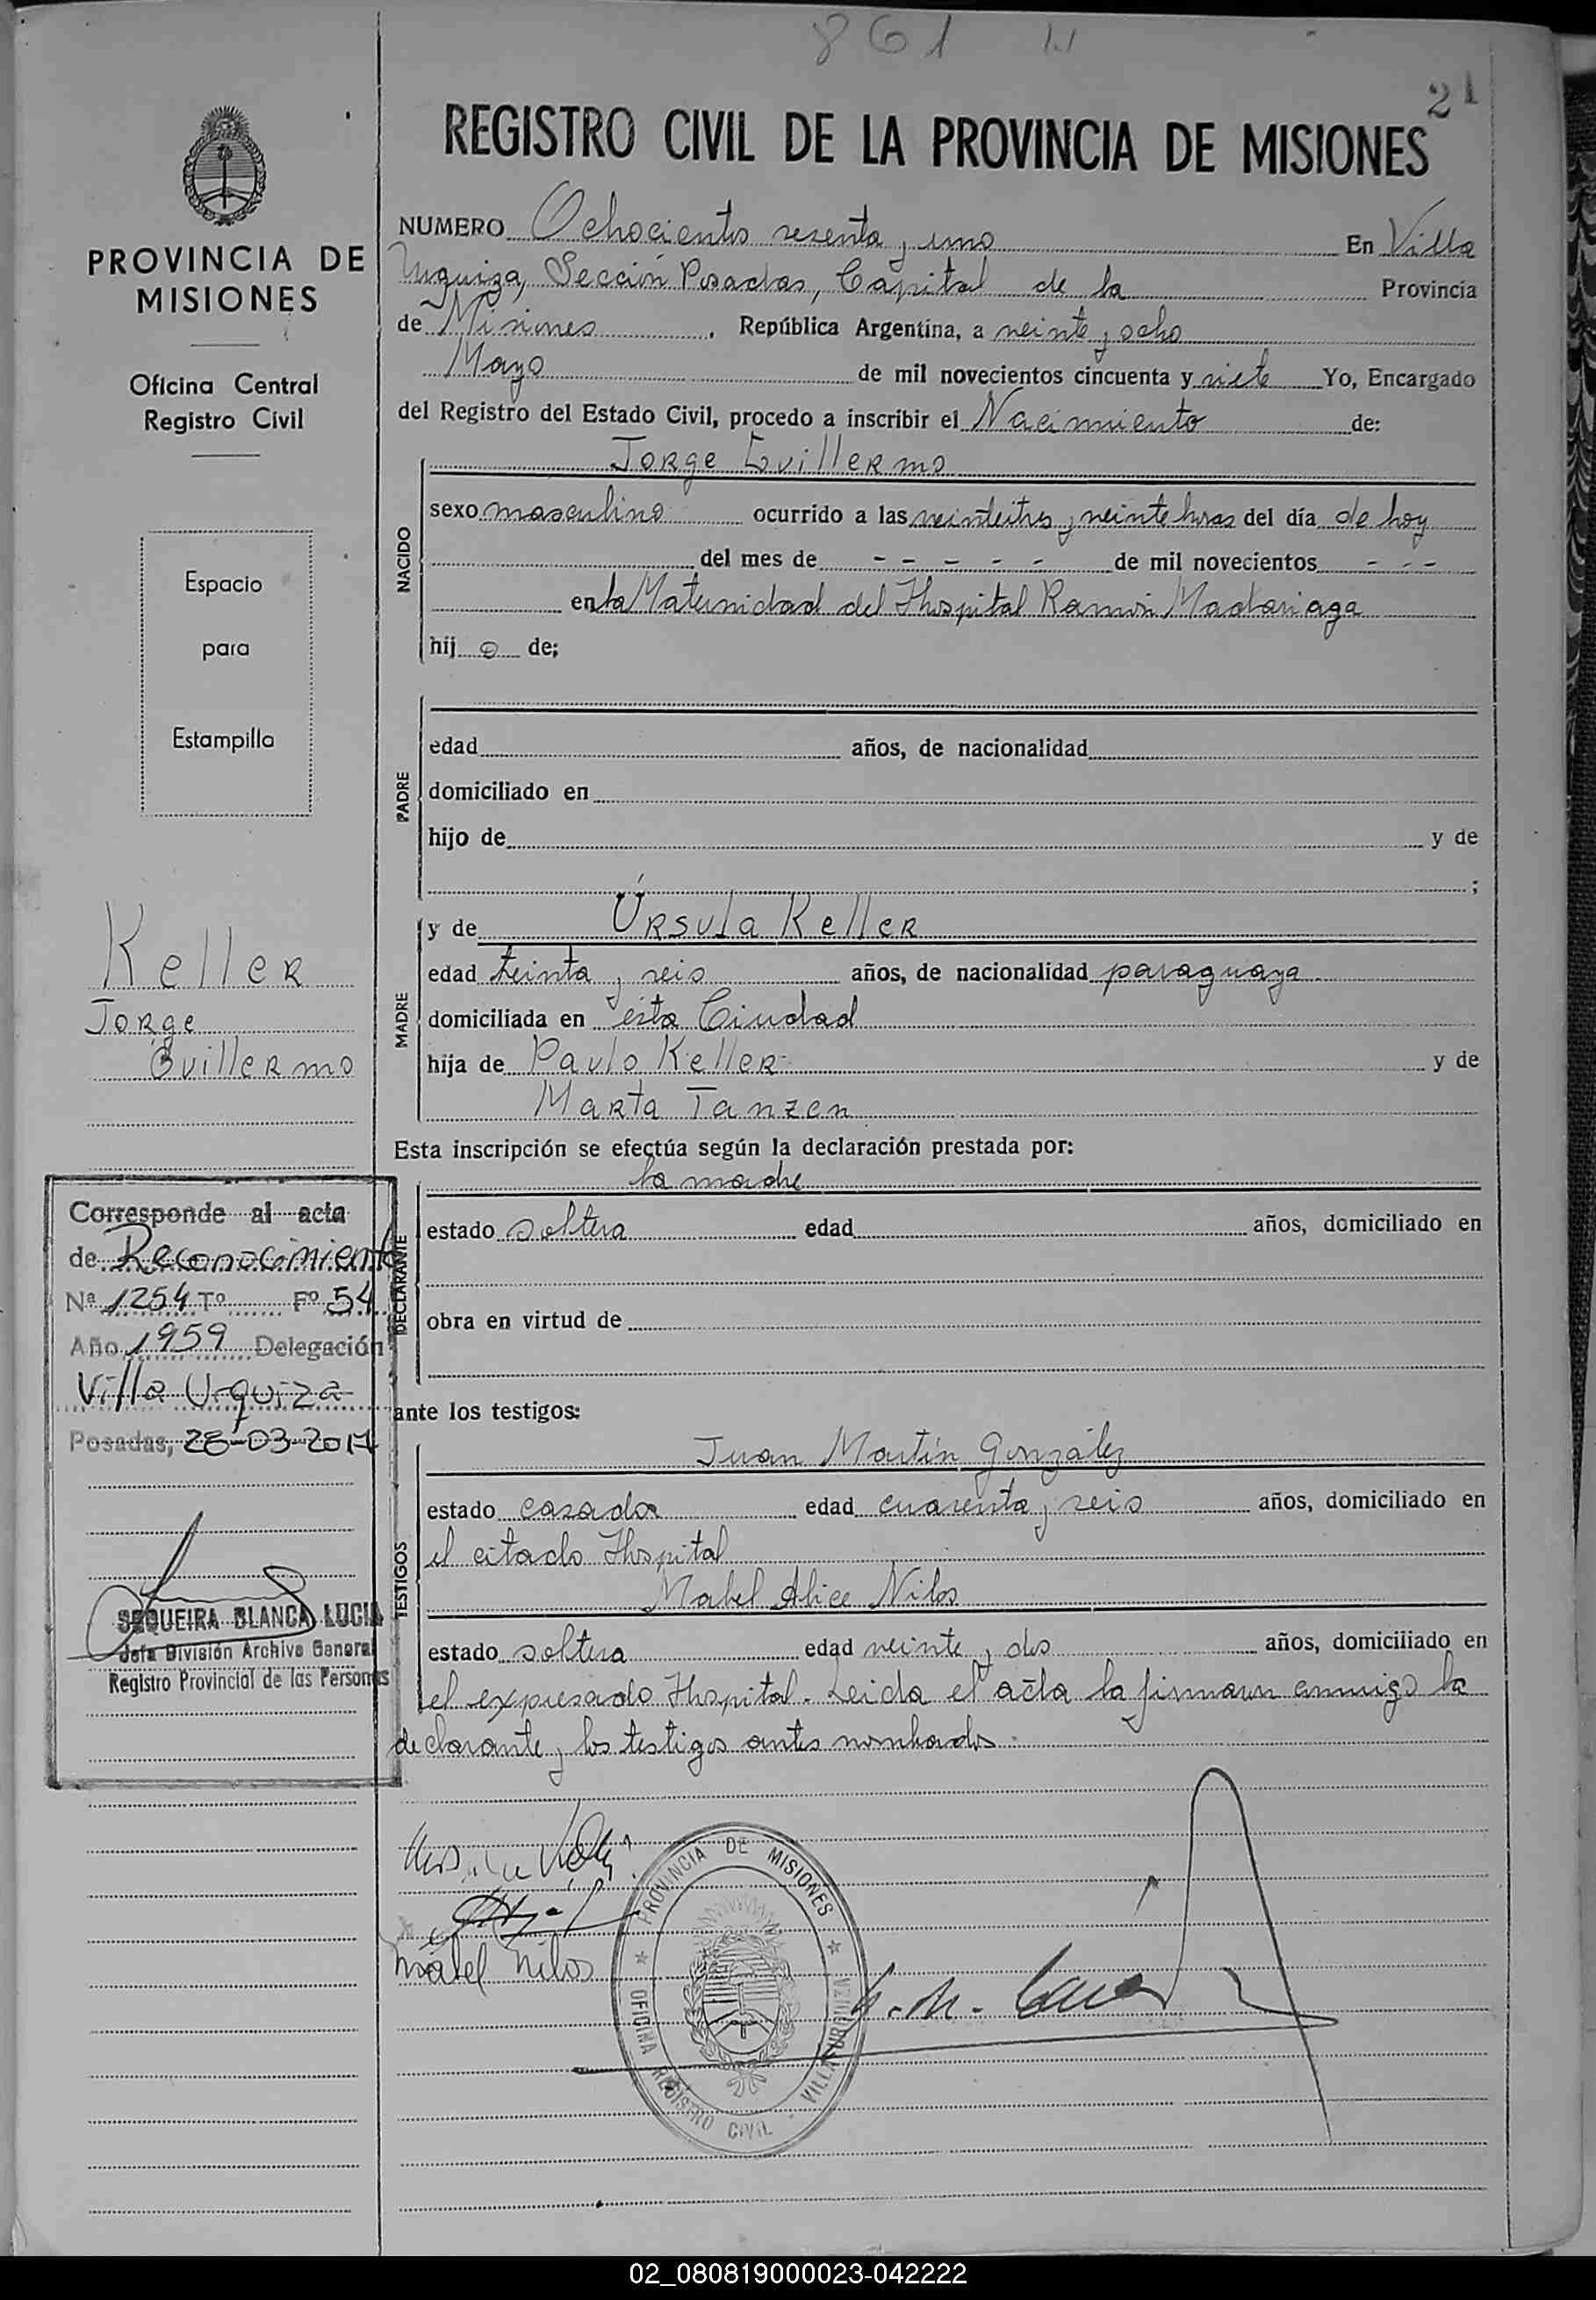 861
21
REGISTRO CIVIL DE LA PROVINCIA DE MISIONES
PROVINCIA DE
MISIONES
Oficina Central
Registro Civil
Espacio
para
Estampilla
Keller
Jorge
Guillermo
Corresponde al acta
de Reconocimiento
Nª 1254 Tº Fº 54
Año 1959 Delegación
Villa Urquiza
Posadas, 28-03-2017
SEQUEIRA BLANCA LUCIA
Jefa División Archivo General
Registro Provincial de las Personas
NUMERO Ochocientos sesenta y uno En Villa
Urquiza, Sección Posadas, Capital de la Provincia
de Misiones, República Argentina, a veinte y ocho
Mayo de mil novecientos cincuenta y siete Yo, Encargado
del Registro del Estado Civil, procedo a inscribir el Nacimiento de:
NACIDO
Jorge Guillermo
sexo masculino ocurrido a las veintitres y veinte horas del día de hoy
del mes de - - - - - de mil novecientos - - -
en la Maternidad del Hospital Ramón Madariaga
hij o de;
PADRE
edad años, de nacionalidad
domiciliado en
hijo de y de
;
MADRE
y de Úrsula Keller
edad treinta y seis años, de nacionalidad paraguaya
domiciliada en esta Ciudad
hija de Paulo Keller y de
Marta Tanzen
Esta inscripción se efectúa según la declaración prestada por:
DECLARANTE
la madre
estado soltera edad años, domiciliado en
obra en virtud de
ante los testigos:
TESTIGOS
Juan Martín González
estado casado edad cuarenta y seis años, domiciliado en
el citado Hospital
Mabel Alice Nilos
estado soltera edad veinte y dos años, domiciliado en
el expresado Hospital. Leida el acta la firman conmigo la
declarante y los testigos antes nombrados.
Mabel Nilos
PROVINCIA DE MISIONES
OFICINA REGISTRO CIVIL - VILLA URQUIZA
02_080819000023-042222